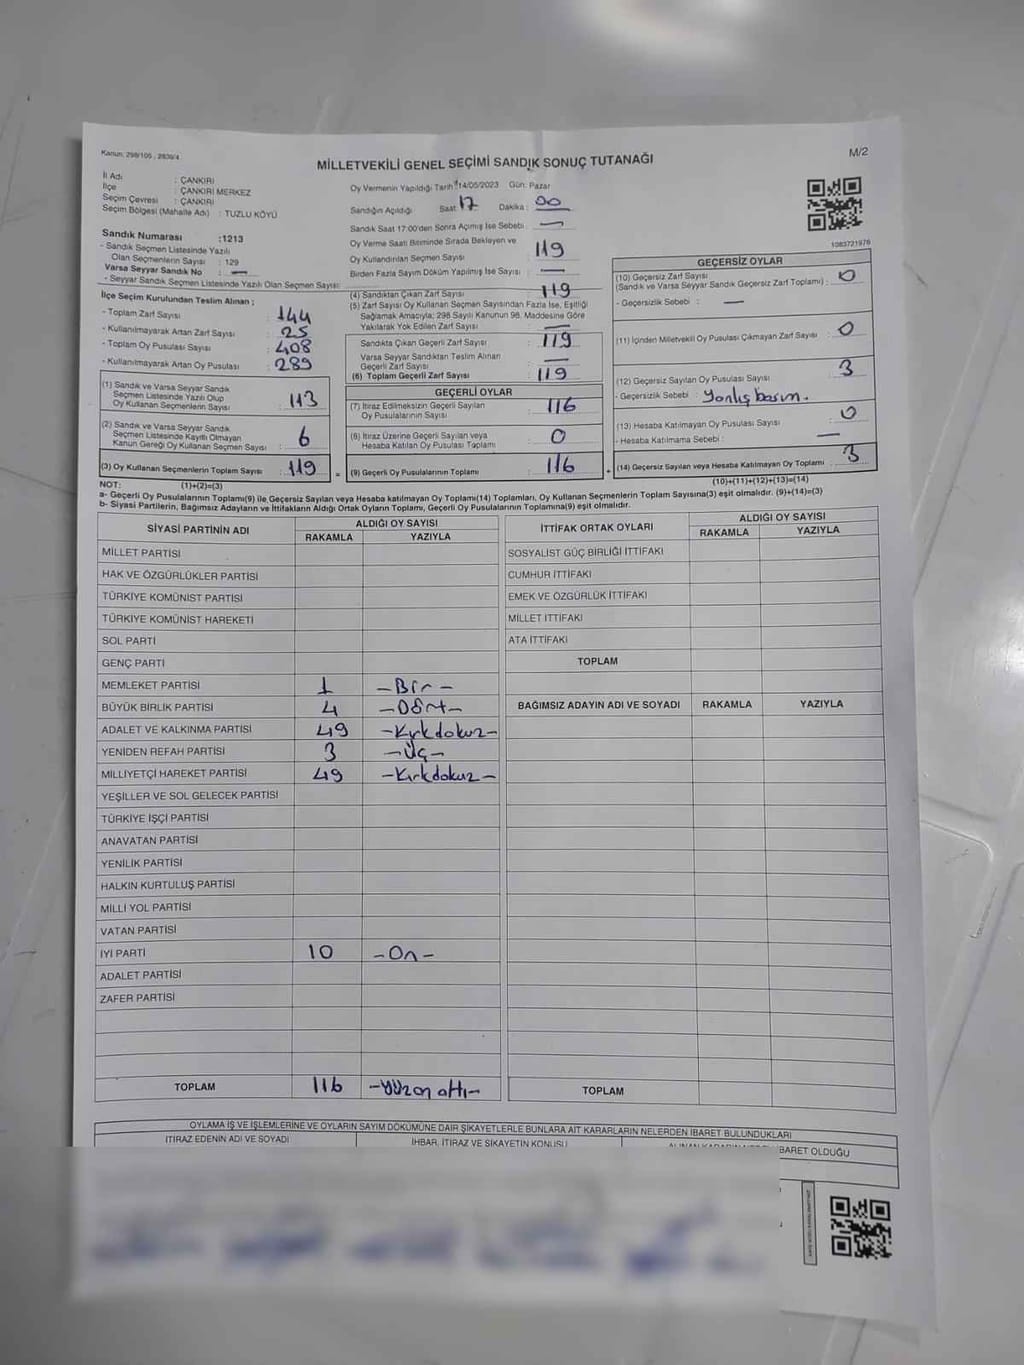 Kanun: 298/105, 2839/4
M/2
MİLLETVEKİLİ GENEL SEÇİMİ SANDIK SONUÇ TUTANAĞI
İl Adı : ÇANKIRI
İlçe : ÇANKIRI MERKEZ
Seçim Çevresi : ÇANKIRI
Seçim Bölgesi (Mahalle Adı) : TUZLU KÖYÜ
Sandık Numarası :1213
- Sandık Seçmen Listesinde Yazılı
Olan Seçmenlerin Sayısı : 129
Varsa Seyyar Sandık No : —
- Seyyar Sandık Seçmen Listesinde Yazılı Olan Seçmen Sayısı:
İlçe Seçim Kurulundan Teslim Alınan ;
- Toplam Zarf Sayısı : 144
- Kullanılmayarak Artan Zarf Sayısı : 25
- Toplam Oy Pusulası Sayısı : 408
- Kullanılmayarak Artan Oy Pusulası : 289
(1) Sandık ve Varsa Seyyar Sandık
Seçmen Listesinde Yazılı Olup
Oy Kullanan Seçmenlerin Sayısı : 113
(2) Sandık ve Varsa Seyyar Sandık
Seçmen Listesinde Kayıtlı Olmayan
Kanun Gereği Oy Kullanan Seçmen Sayısı : 6
(3) Oy Kullanan Seçmenlerin Toplam Sayısı : 119 =
Oy Vermenin Yapıldığı Tarih : 14/05/2023 Gün: Pazar
Sandığın Açıldığı Saat : 17 Dakika : 00
Sandık Saat 17:00'den Sonra Açılmış İse Sebebi : —
Oy Verme Saati Bitiminde Sırada Bekleyen ve
Oy Kullandırılan Seçmen Sayısı : 119
Birden Fazla Sayım Döküm Yapılmış İse Sayısı : —
(4) Sandıktan Çıkan Zarf Sayısı : 119
(5) Zarf Sayısı Oy Kullanan Seçmen Sayısından Fazla İse, Eşitliği
Sağlamak Amacıyla; 298 Sayılı Kanunun 98. Maddesine Göre
Yakılarak Yok Edilen Zarf Sayısı : —
Sandıkta Çıkan Geçerli Zarf Sayısı : 119
Varsa Seyyar Sandıktan Teslim Alınan
Geçerli Zarf Sayısı : —
(6) Toplam Geçerli Zarf Sayısı : 119
GEÇERLİ OYLAR
(7) İtiraz Edilmeksizin Geçerli Sayılan
Oy Pusulalarının Sayısı : 116
(8) İtiraz Üzerine Geçerli Sayılan veya
Hesaba Katılan Oy Pusulası Toplamı : 0
(9) Geçerli Oy Pusulalarının Toplamı : 116 +
1083721976
GEÇERSİZ OYLAR
(10) Geçersiz Zarf Sayısı
(Sandık ve Varsa Seyyar Sandık Geçersiz Zarf Toplamı) : 0
- Geçersizlik Sebebi : —
(11) İçinden Milletvekili Oy Pusulası Çıkmayan Zarf Sayısı : 0
(12) Geçersiz Sayılan Oy Pusulası Sayısı : 3
- Geçersizlik Sebebi : Yanlış basım.
(13) Hesaba Katılmayan Oy Pusulası Sayısı : 0
- Hesaba Katılmama Sebebi : —
(14) Geçersiz Sayılan veya Hesaba Katılmayan Oy Toplamı : 3
NOT: (1)+(2)=(3)
(10)+(11)+(12)+(13)=(14)
a- Geçerli Oy Pusulalarının Toplamı(9) ile Geçersiz Sayılan veya Hesaba katılmayan Oy Toplamı(14) Toplamları, Oy Kullanan Seçmenlerin Toplam Sayısına(3) eşit olmalıdır. (9)+(14)=(3)
b- Siyasi Partilerin, Bağımsız Adayların ve İttifakların Aldığı Ortak Oyların Toplamı, Geçerli Oy Pusulalarının Toplamına(9) eşit olmalıdır.
SİYASİ PARTİNİN ADI ALDIĞI OY SAYISI
RAKAMLA YAZIYLA
MİLLET PARTİSİ
HAK VE ÖZGÜRLÜKLER PARTİSİ
TÜRKİYE KOMÜNİST PARTİSİ
TÜRKİYE KOMÜNİST HAREKETİ
SOL PARTİ
GENÇ PARTİ
MEMLEKET PARTİSİ 1 -Bir-
BÜYÜK BİRLİK PARTİSİ 4 -Dört-
ADALET VE KALKINMA PARTİSİ 49 -Kırkdokuz-
YENİDEN REFAH PARTİSİ 3 -Üç-
MİLLİYETÇİ HAREKET PARTİSİ 49 -Kırkdokuz-
YEŞİLLER VE SOL GELECEK PARTİSİ
TÜRKİYE İŞÇİ PARTİSİ
ANAVATAN PARTİSİ
YENİLİK PARTİSİ
HALKIN KURTULUŞ PARTİSİ
MİLLİ YOL PARTİSİ
VATAN PARTİSİ
İYİ PARTİ 10 -On-
ADALET PARTİSİ
ZAFER PARTİSİ
TOPLAM 116 -Yüzon altı-
İTTİFAK ORTAK OYLARI ALDIĞI OY SAYISI
RAKAMLA YAZIYLA
SOSYALİST GÜÇ BİRLİĞİ İTTİFAKI
CUMHUR İTTİFAKI
EMEK VE ÖZGÜRLÜK İTTİFAKI
MİLLET İTTİFAKI
ATA İTTİFAKI
TOPLAM
BAĞIMSIZ ADAYIN ADI VE SOYADI RAKAMLA YAZIYLA
TOPLAM
OYLAMA İŞ VE İŞLEMLERİNE VE OYLARIN SAYIM DÖKÜMÜNE DAİR ŞİKAYETLERLE BUNLARA AİT KARARLARIN NELERDEN İBARET BULUNDUKLARI
İTİRAZ EDENİN ADI VE SOYADI İHBAR, İTİRAZ VE ŞİKAYETİN KONUSU İBARET OLDUĞU